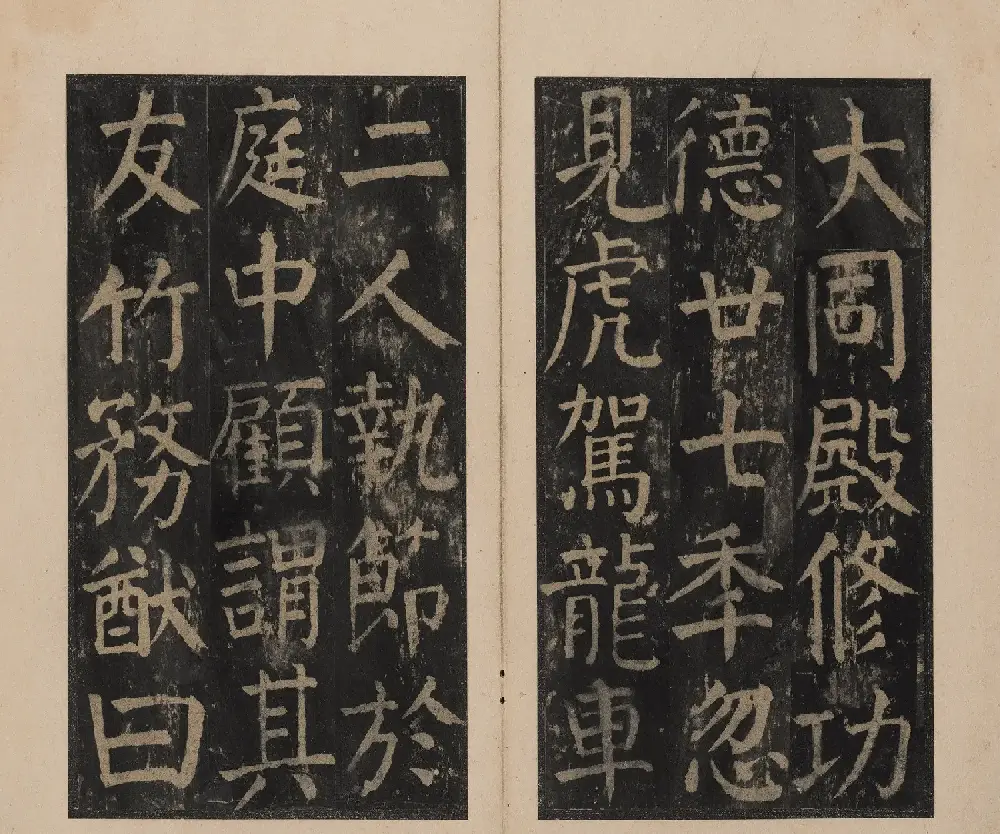 大周殿修功
德廿七秊忽
見虎駕龍車
二人執節於
庭中顧謂其
友竹務猷曰